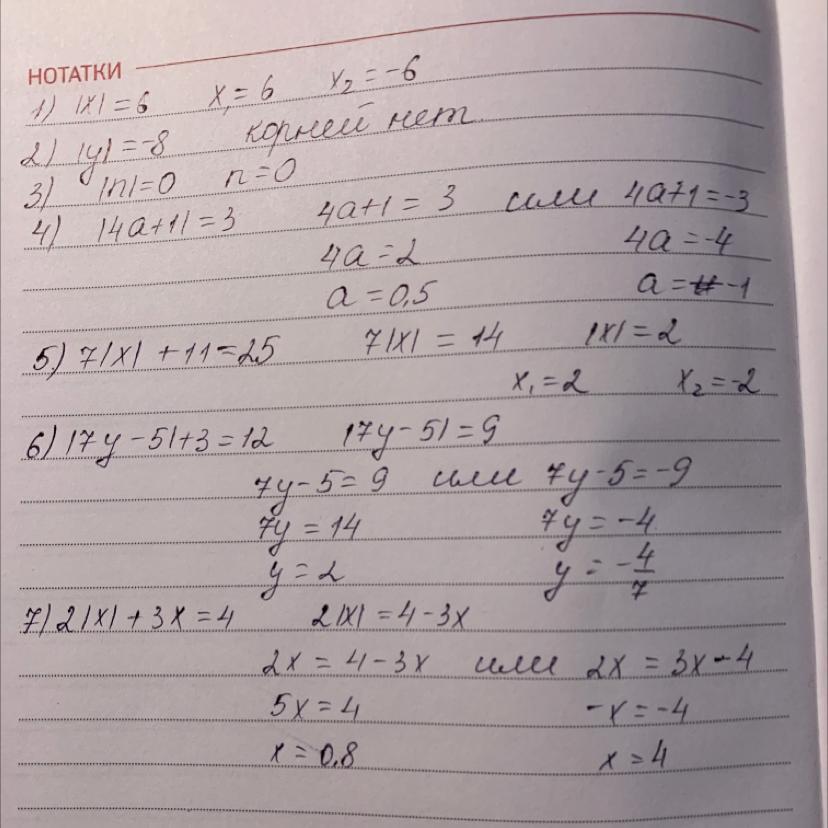 НОТАТКИ
1) |x| = 6 x₁ = 6 x₂ = -6
2) |y| = -8 корней нет.
3) |n| = 0 n = 0
4) |4a+1| = 3 4a+1 = 3 или 4a+1 = -3
4a = 2 4a = -4
a = 0,5 a = -1
5) 7|x| + 11 = 25 7|x| = 14 |x| = 2
x₁ = 2 x₂ = -2
6) |7y - 5| + 3 = 12 |7y - 5| = 9
7y - 5 = 9 или 7y - 5 = -9
7y = 14 7y = -4
y = 2 y = -4/7
7) 2|x| + 3x = 4 2|x| = 4 - 3x
2x = 4 - 3x или 2x = 3x - 4
5x = 4 -x = -4
x = 0,8 x = 4